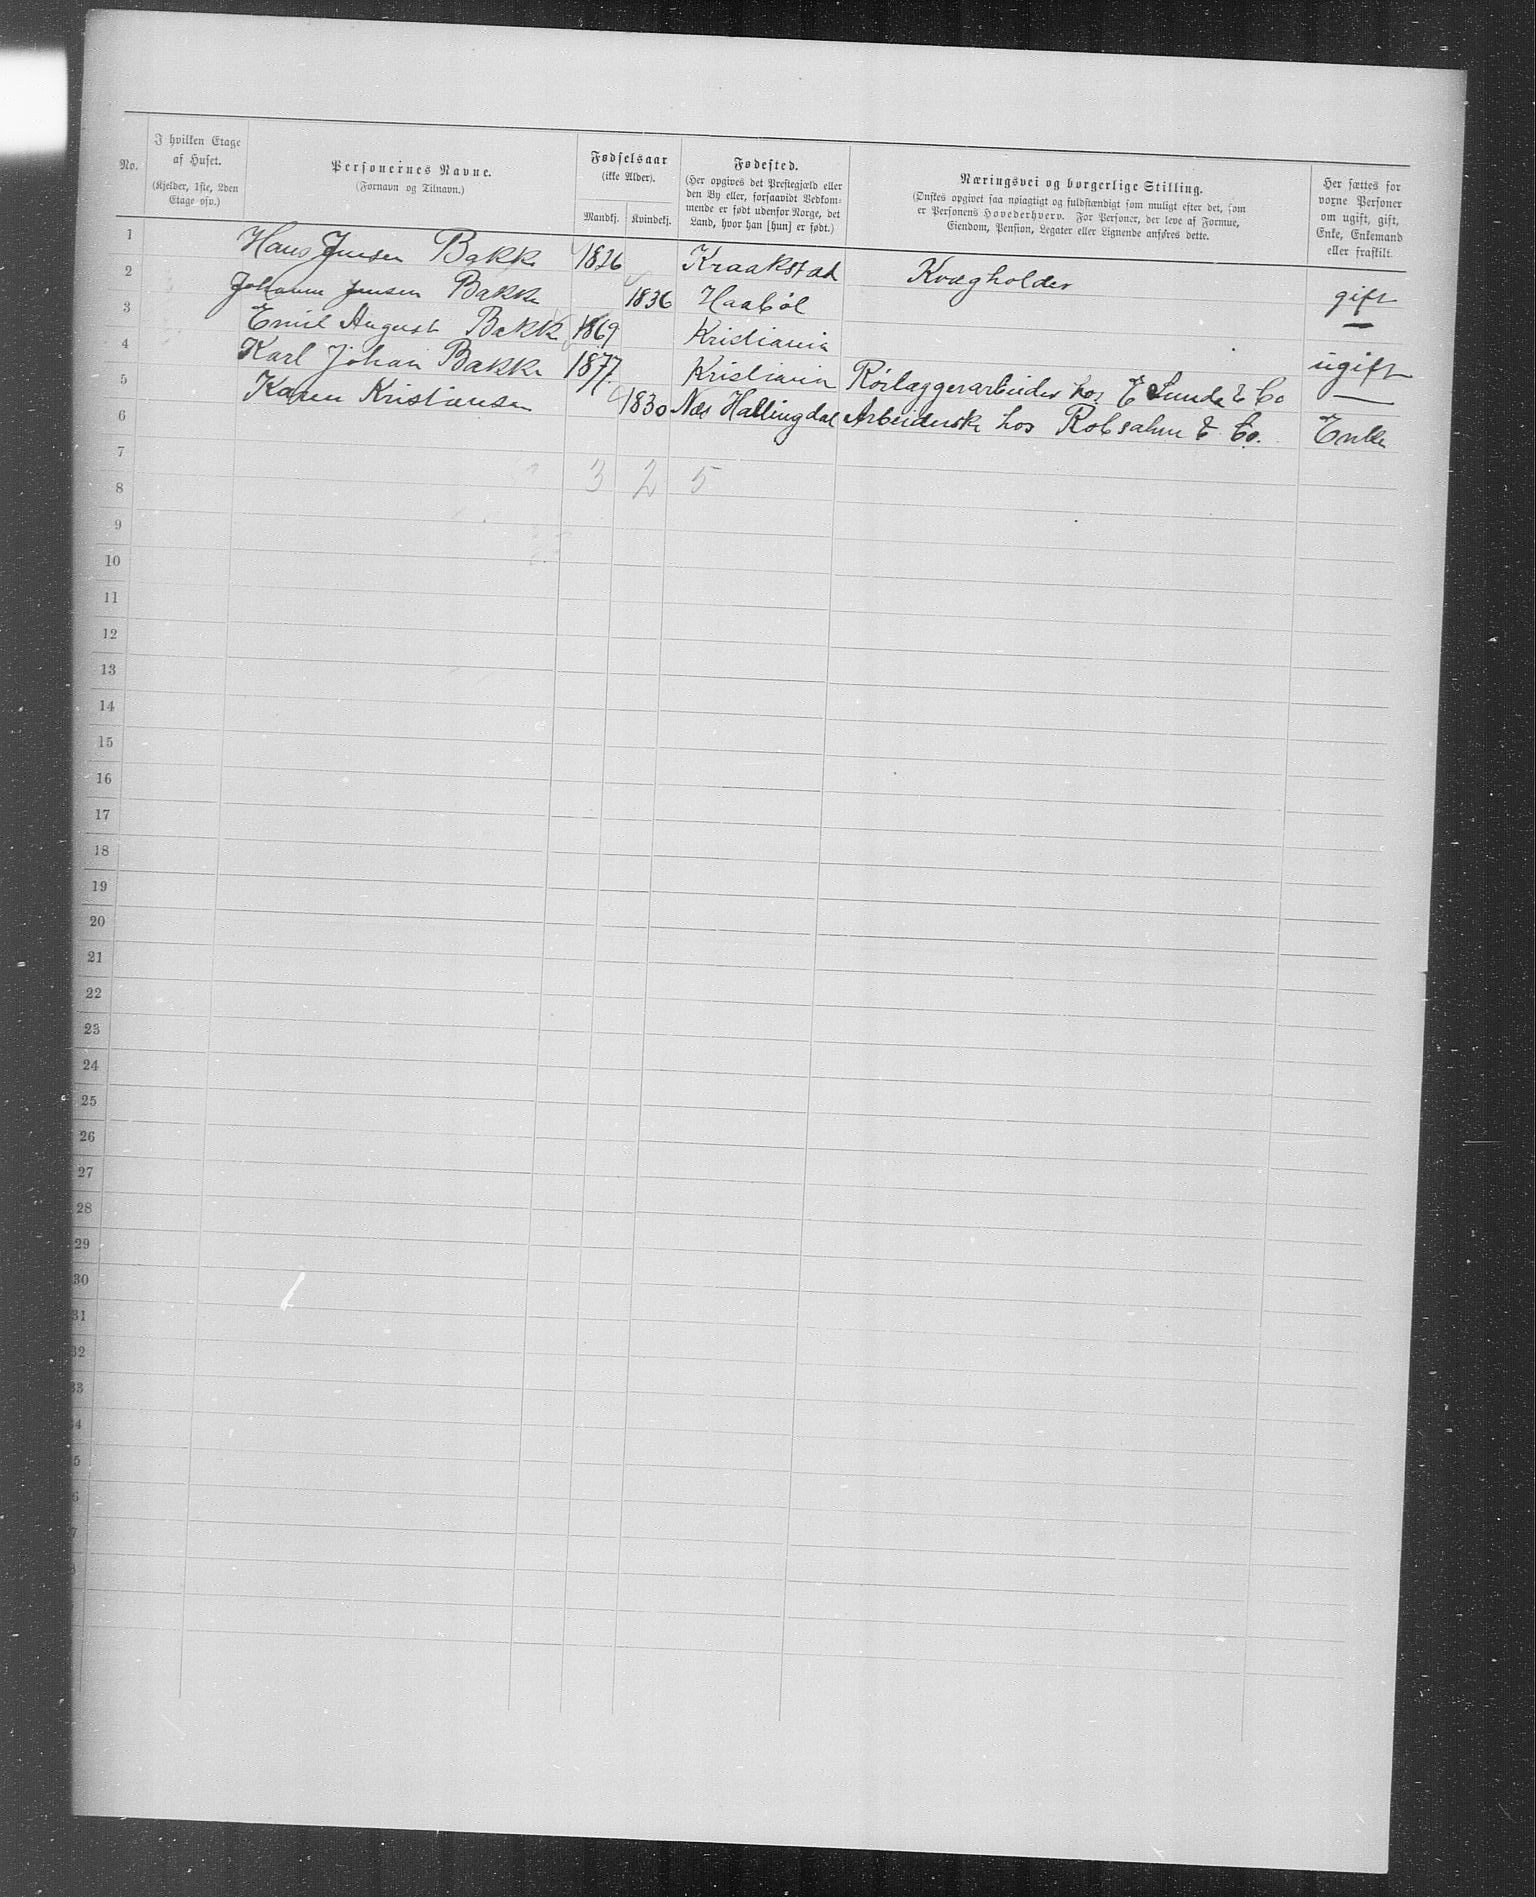 No.
I hvilken Etage
af Huset.
(Kjelder, 1ste, 2den
Etage osv.)
Personernes Navne.
(Fornavn og Tilnavn.)
Fødselsaar
(ikke Alder).
Mandkj. Kvindekj.
Fødested.
(Her opgives det Prestegjæld eller
den By eller, forsaavidt Vedkom-
mende er født udenfor Norge, det
Land, hvor han [hun] er født.)
Næringsvei og borgerlige Stilling.
(Ønskes opgivet saa nøiagtigt og fuldstændigt som muligt efter det, som
er Personens Hovederhverv. For Personer, der leve af Formue,
Eiendom, Pension, Legater eller Lignende anføres dette.
Her sættes for
voxne Personer
om ugift, gift,
Enke, Enkemand
eller fraskilt.
1 Hans Jensen Bakke 1826 Kraakstad Kvægholder gift
2 Johanne Jensen Bakke 1836 Haabøl —
3 Emil August Bakke 1869 Kristiania ugift
4 Karl Johan Bakke 1877 Kristiania Rørlæggerarbeider hos E Sunde & Co —
5 Karen Kristiansen 1830 Næs Hallingdal Arbeiderske hos Robsahm & Co. Enke
6
7 3 2 5
8
9
10
11
12
13
14
15
16
17
18
19
20
21
22
23
24
25
26
27
28
29
30
31
32
33
34
5
6
7